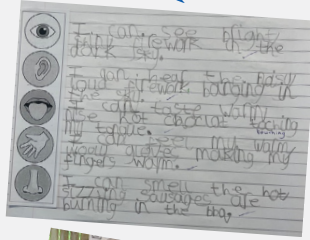 I can see bright
pink firework in the
dark sky.
I can hear the noisy
loud firework banging in
the sky.
I can taste warm
nise hot choclat toching
touching
my tongue.
I can feel my warm
wooly making my
fingers warm.
I can smell the hot
sizzling sausages are
burning in the bbq.